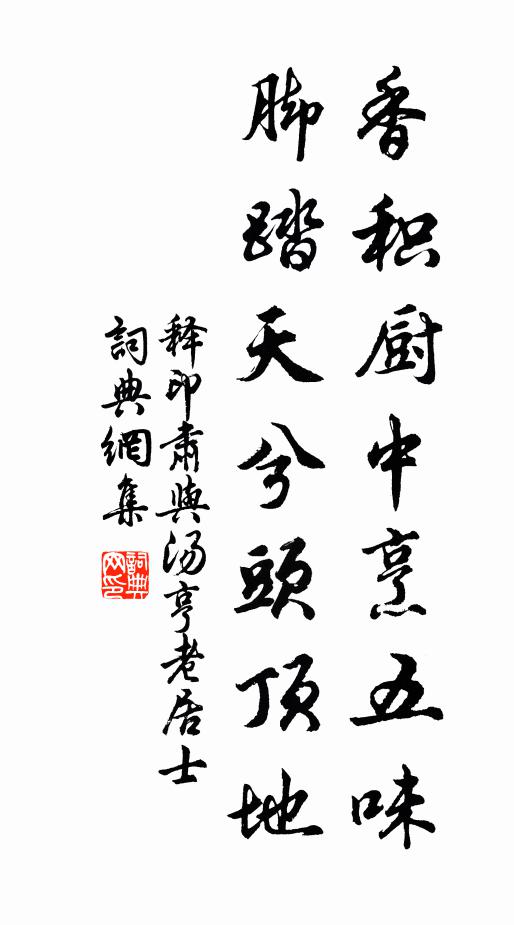 香积厨中烹五味
脚踏天兮頭顶地
释印肃與汤亨老居士
詞典網集
詞典网印